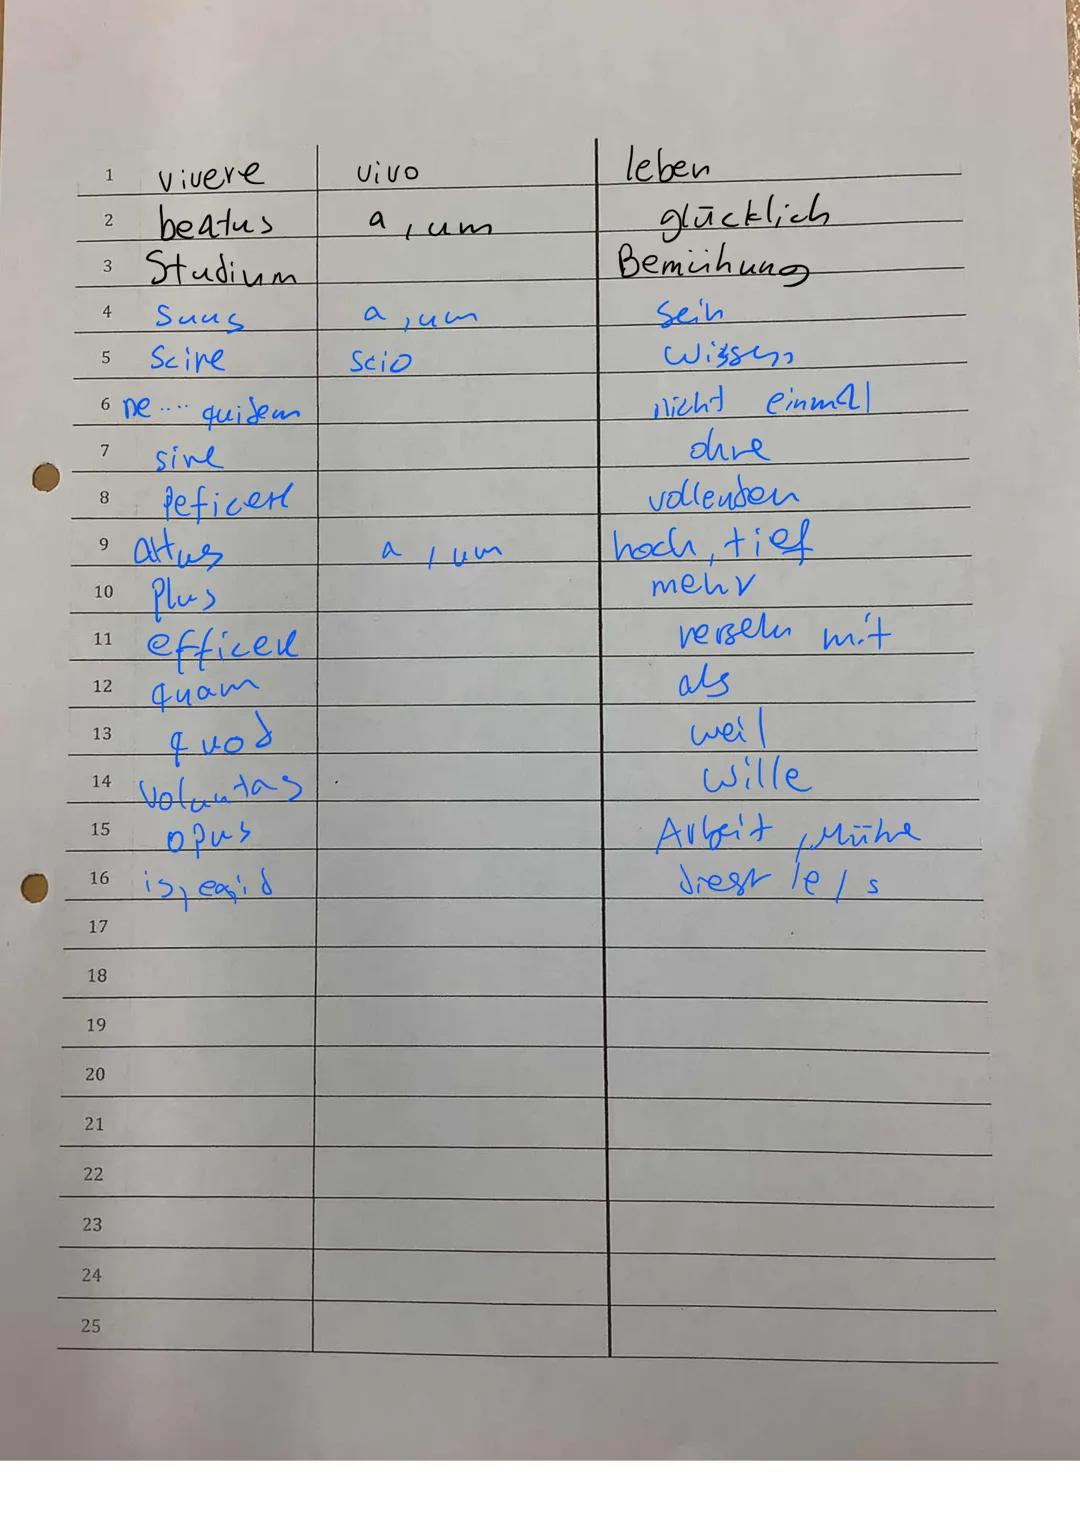 1 vivere vivo leben
2 beatus a, um glücklich
3 Studium Bemühung
4 Suus a, um Sein
5 Scire Scio Wissen
6 ne .... quidem nicht einmal
7 sine ohne
8 vollenden
9 altus a, um hoch, tief
10 Plus mehr
11 mit
12 quam als
13 quod weil
14 Voluntas Wille
15 opus Arbeit, Mühe
16 is, ea, id dieser /e/s
17
18
19
20
21
22
23
24
25